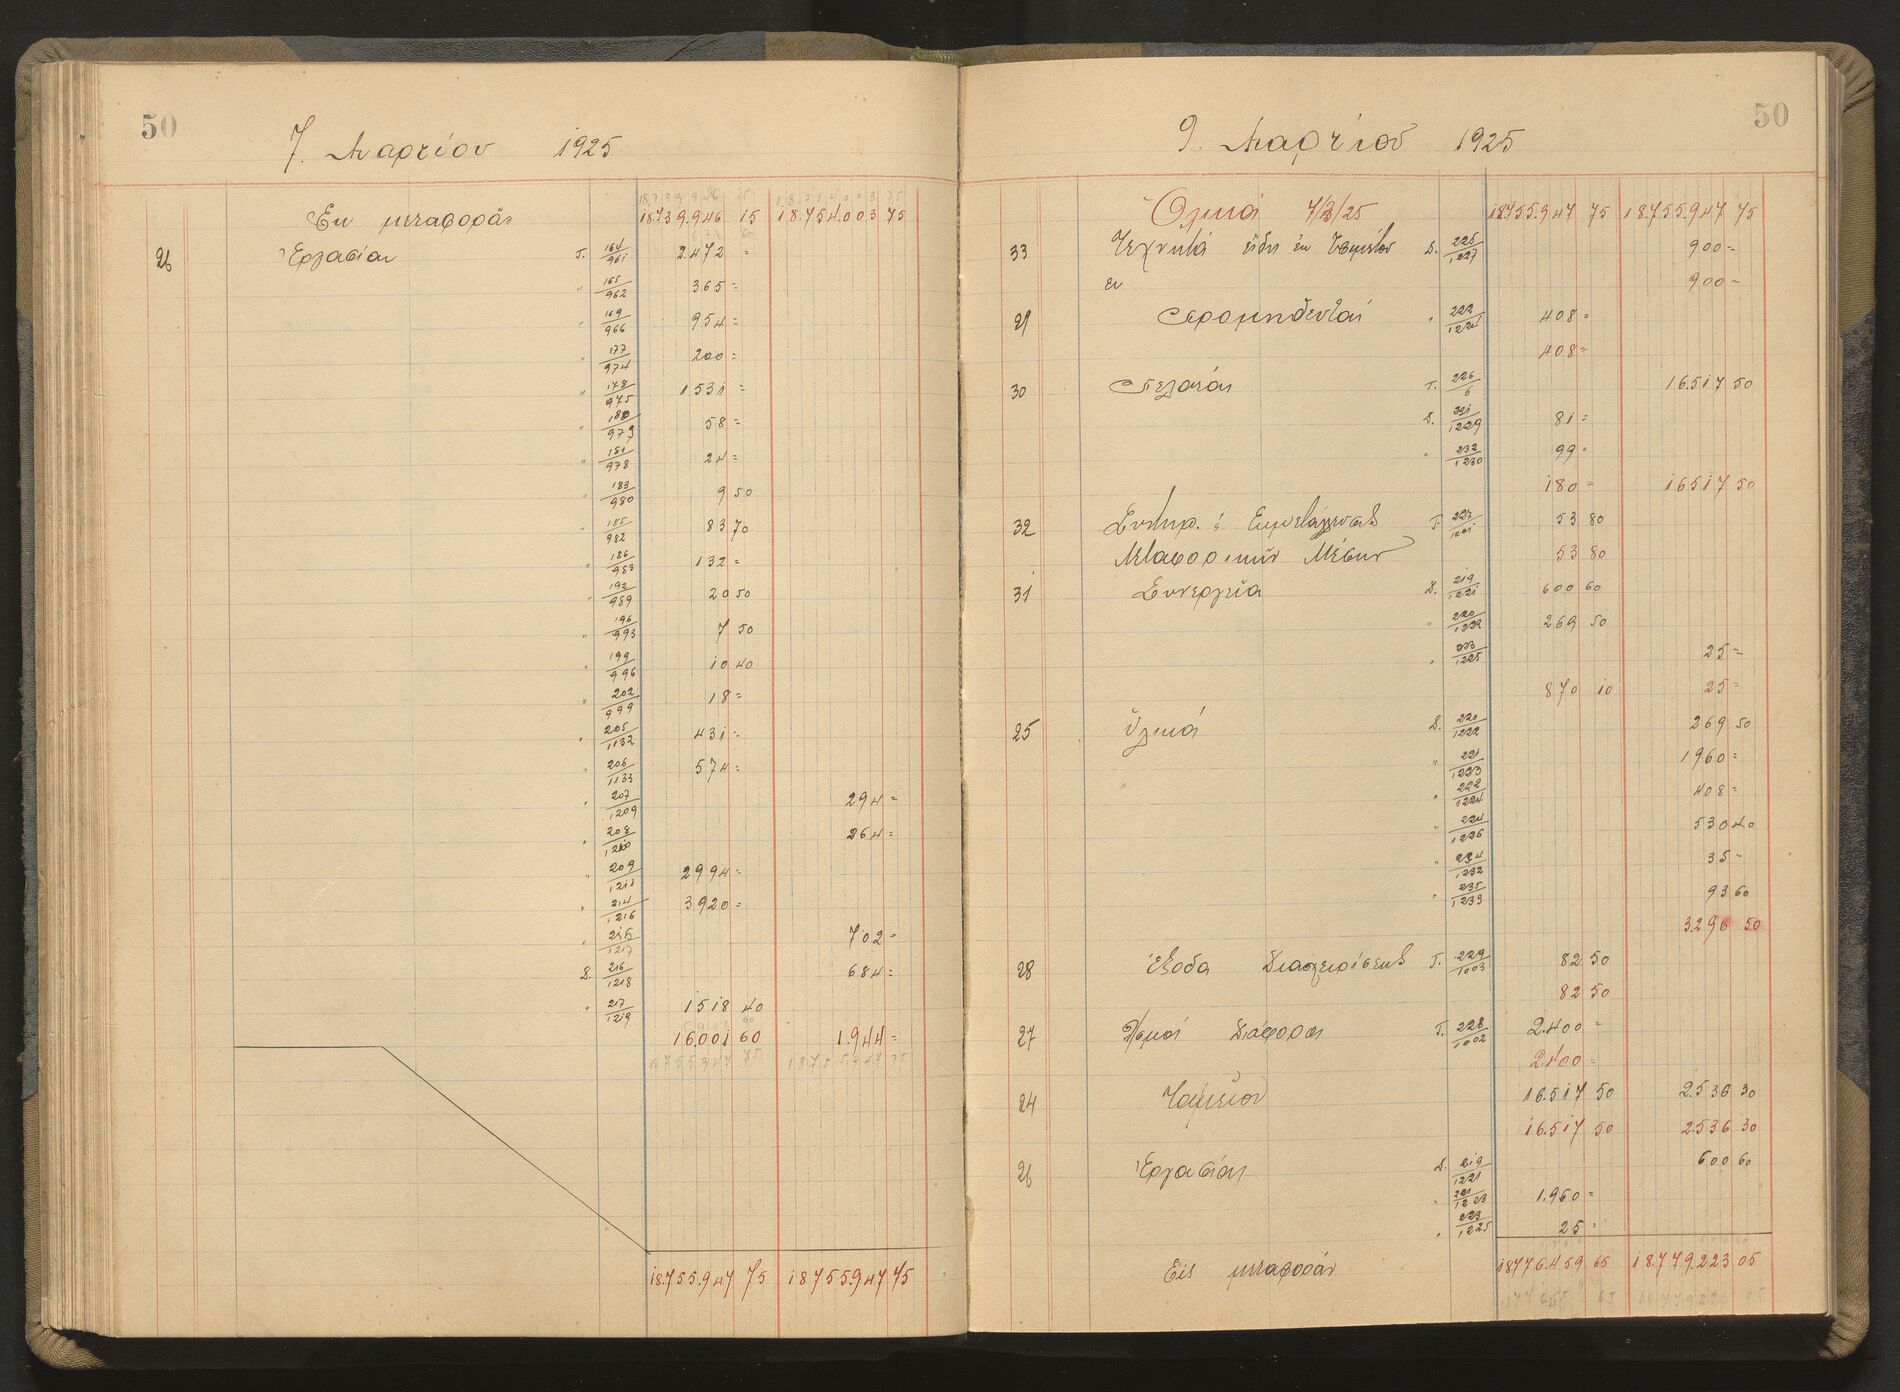 50
7. Μαρτίου 1925
Εκ μεταφοράς 18.739.946 15 18.754.003 75
26 Εργασίαι Τ. 164/961 2.472 =
" 165/962 365 =
" 169/966 954 =
" 177/974 200 =
" 178/975 1531 =
" 180/973 58 =
" 181/978 24 =
" 183/980 9 50
" 185/982 83 70
" 186/983 132 =
" 192/989 20 50
" 196/993 7 50
" 199/996 10 40
" 202/999 18 =
" 205/1132 431 =
" 206/1133 574 =
" 207/1209 294 =
" 208/1210 264 =
" 209/1211 2994 =
" 214/1216 3920 =
" 215/1217 702 =
Δ. 216/1218 684 =
" 217/1219 1518 40
16.001 60 1.944 =
18.755.947 75 18.755.947 75
18.755.947 75 18.755.947 75
50
9. Μαρτίου 1925
Ολικά 7/3/25 18.755.947 75 18.755.947 75
33 Τεχνητά είδη εκ Δ. 225/1227 900 =
εν 900 =
29 Προμηθευταί " 222/1224 408 =
408 =
30 Πελάται Τ. 226/6 16.517 50
Δ. 231/1229 81 =
" 232/1230 99 =
180 = 16.517 50
32 Συντηρ. : Εκμετάλλευσις Τ. 227/1001 53 80
Μεταφορικών Μέσων 53 80
31 Συνεργεία Δ. 219/1221 600 60
" 220/1222 269 50
" 223/1225 25 =
870 10 25 =
25 Υλικά Δ. 220/1222 269 50
" 221/1223 1960 =
" 222/1224 408 =
" 224/1226 530 40
" 234/1232 35 =
" 235/1233 93 60
3.296 50
28 Έξοδα Διαχειρίσεως Τ. 229/1003 82 50
82 50
27 Διάφοροι Τ. 228/1002 2.400 =
2.400 =
24 Ταμείον 16.517 50 2.536 30
16.517 50 2.536 30
26 Εργασίαι Δ. 219/1221 600 60
" 221/1223 1.960 =
" 223/1225 25 =
Εις μεταφοράν 18.776.459 65 18.779.223 05